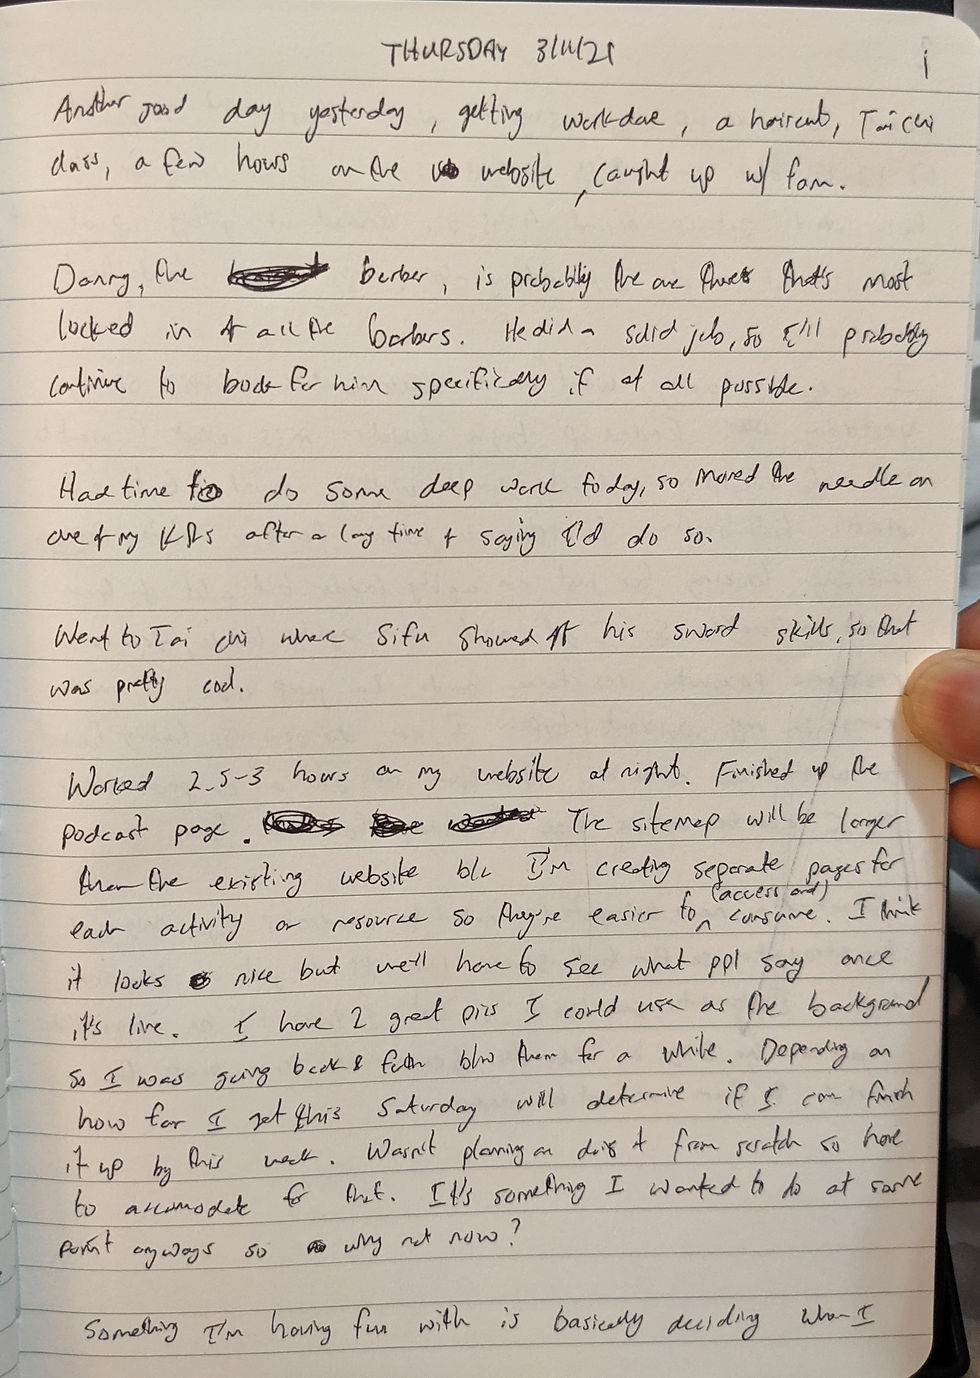 THURSDAY 3/11/21
1
Another good day yesterday, getting work done, a haircut, Tai chi
class, a few hours on the website, caught up w/ fam.
Danny, the barber, is probably the one there that's most
locked in of all the barbers. He did a solid job, so I'll probably
continue to book for him specifically if at all possible.
Had time to do some deep work today, so moved the needle on
one of my KPIs after a long time of saying I'd do so.
Went to Tai chi where Sifu showed off his sword skills, so that
was pretty cool.
Worked 2.5-3 hours on my website at night. Finished up the
podcast page. The sitemap will be larger
than the existing website b/c I'm creating separate pages for
each activity or resource so they're easier to (access and) consume. I think
it looks nice but we'll have to see what ppl say once
it's live. I have 2 great pics I could use as the background
so I was going back & forth b/w them for a while. Depending on
how far I get this Saturday will determine if I can finish
it up by this week. Wasn't planning on doing it from scratch so have
to accomodate for that. It's something I wanted to do at some
point anyways so why not now?
Something I'm having fun with is basically deciding when I